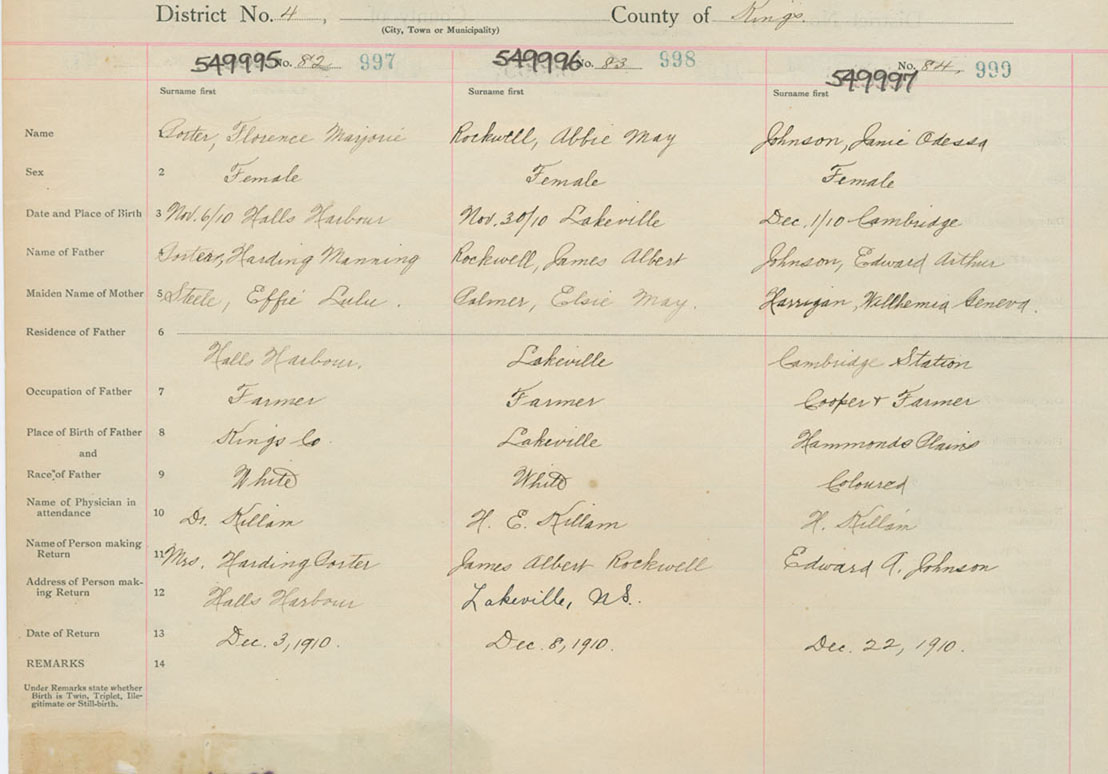 District No. 4 , County of Kings.
(City, Town or Municipality)
549995 No. 82 997 549996 No. 83 998 549997 No. 84. 999
Surname first Surname first Surname first
Name 1 Porter, Florence Marjorie Rockwell, Abbie May Johnson, Janie Odessa
Sex 2 Female Female Female
Date and Place of Birth 3 Nov. 6/10 Halls Harbour Nov. 30/10 Lakeville Dec. 1/10 Cambridge
Name of Father Porter, Harding Manning Rockwell, James Albert Johnson, Edward Arthur
Maiden Name of Mother 5 Steele, Effie Lulu. Palmer, Elsie May. Harrigan, Willhemia Geneva.
Residence of Father 6
Halls Harbour. Lakeville Cambridge Station
Occupation of Father 7 Farmer Farmer Cooper & Farmer
Place of Birth of Father 8 Kings Co Lakeville Hammonds Plains
and
Race of Father 9 White White Coloured
Name of Physician in
attendance 10 Dr. Killam H. E. Killam H. Killam
Name of Person making
Return 11 Mrs. Harding Porter James Albert Rockwell Edward A. Johnson
Address of Person mak-
ing Return 12 Halls Harbour Lakeville, N.S.
Date of Return 13 Dec. 3, 1910. Dec. 8, 1910. Dec. 22, 1910.
REMARKS 14
Under Remarks state whether
Birth is Twin, Triplet, Ille-
gitimate or Still-birth.